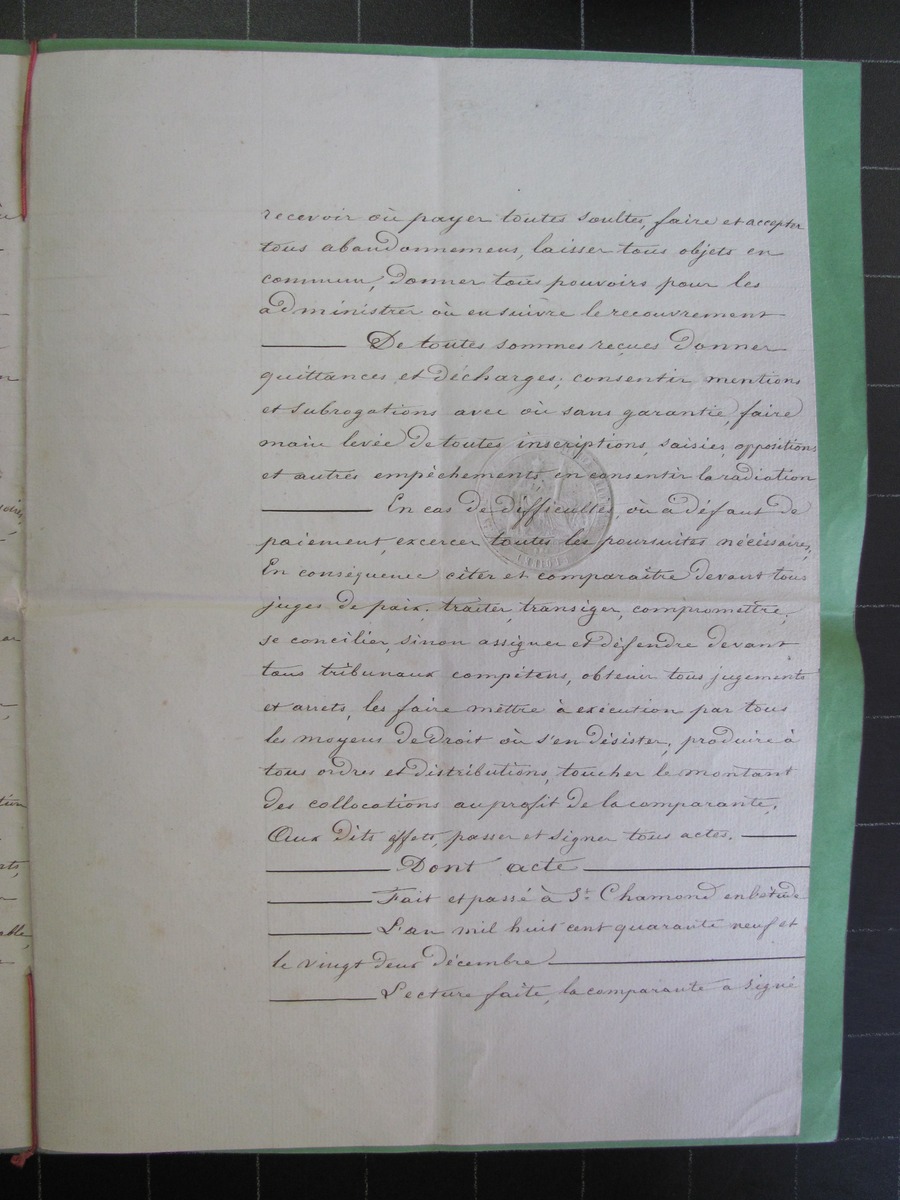 recevoir où payer toutes soultes, faire et accepter
tous abandonnemens, laisser tous objets en
commun, donner tous pouvoirs pour les
administrer où en suivre le recouvrement
De toutes sommes reçues donner
quittances et décharges; consentir mentions
et subrogations avec où sans garantie, faire
main levée de toutes inscriptions, saisies, oppositions
et autres empêchements, en consentir la radiation
En cas de difficultés, où à défaut de
paiement, excercer toutes les poursuites nécéssaires;
En conséquence citer et comparaître devant tous
juges de paix; traiter, transiger, compromettre;
se concilier, sinon assigner et défendre devant
tous tribunaux compétens, obtenir tous jugements
et arrets, les faire mettre à exécution par tous
les moyens de droit où s'en désister; produire à
tous ordres et distributions, toucher le montant
des collocations au profit de la comparante.
Aux dits effets, passer et signer tous actes.
Dont acte
Fait et passé à St. Chamond en l'étude
L'an mil huit cent quarante neuf et
le vingt deux décembre
Lecture faite, la comparante a signé